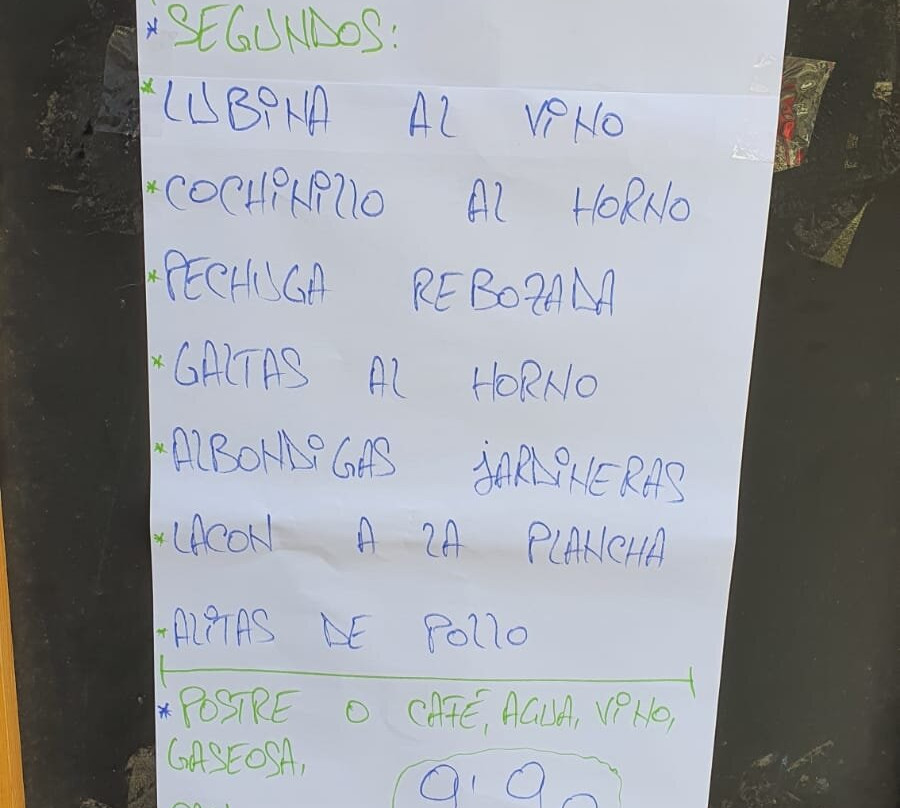 * SEGUNDOS:
* LUBINA AL VINO
* COCHINILLO AL HORNO
* PECHUGA REBOZADA
* GALTAS AL HORNO
* ALBONDIGAS JARDINERAS
* LACON A LA PLANCHA
* ALITAS DE POLLO
* POSTRE O CAFÉ, AGUA, VINO,
GASEOSA,